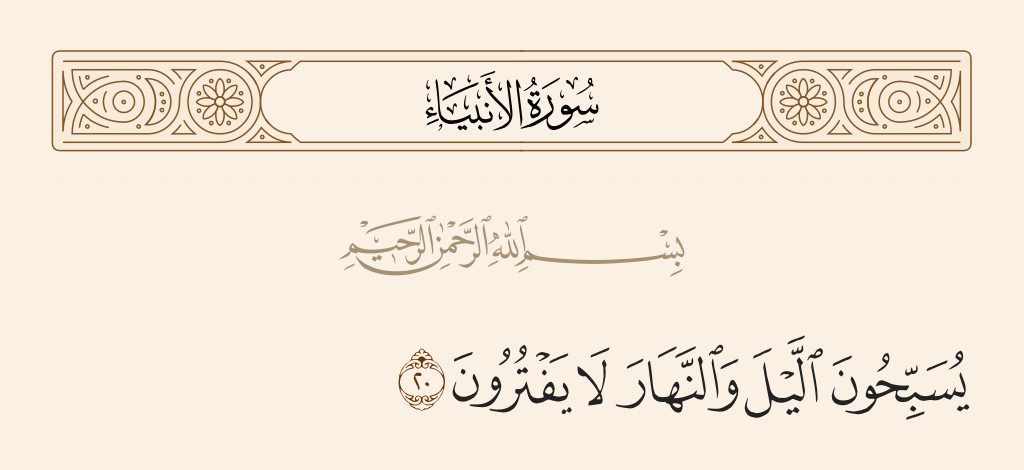 سُورَةُ الأَنبِيَاءِ
بِسْمِ ٱللَّهِ ٱلرَّحْمَٰنِ ٱلرَّحِيمِ
يُسَبِّحُونَ ٱلَّيْلَ وَٱلنَّهَارَ لَا يَفْتُرُونَ ٢٠